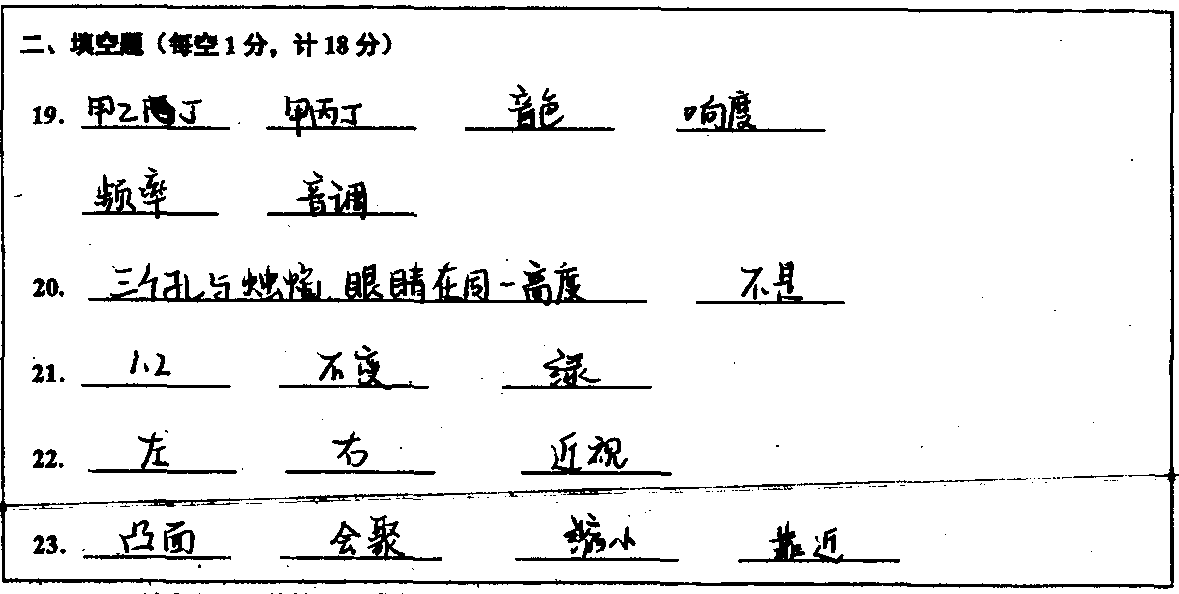 二、填空题（每空1分，计18分）
19. 甲乙丁 甲丙丁 音色 响度
频率 音调
20. 三个孔与烛焰、眼睛在同一高度 不是
21. 1.2 不变 绿
22. 左 右 近视
23. 凸面 会聚 缩小 靠近